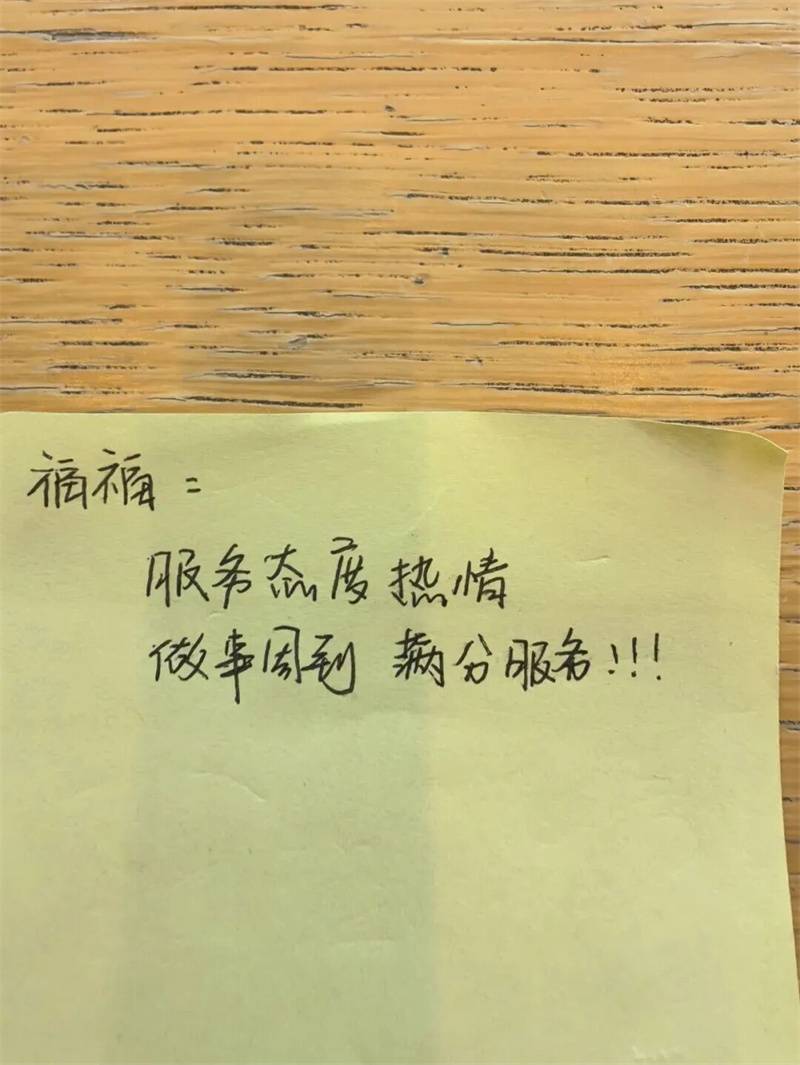 福福：
服务态度热情
做事周到 满分服务!!!